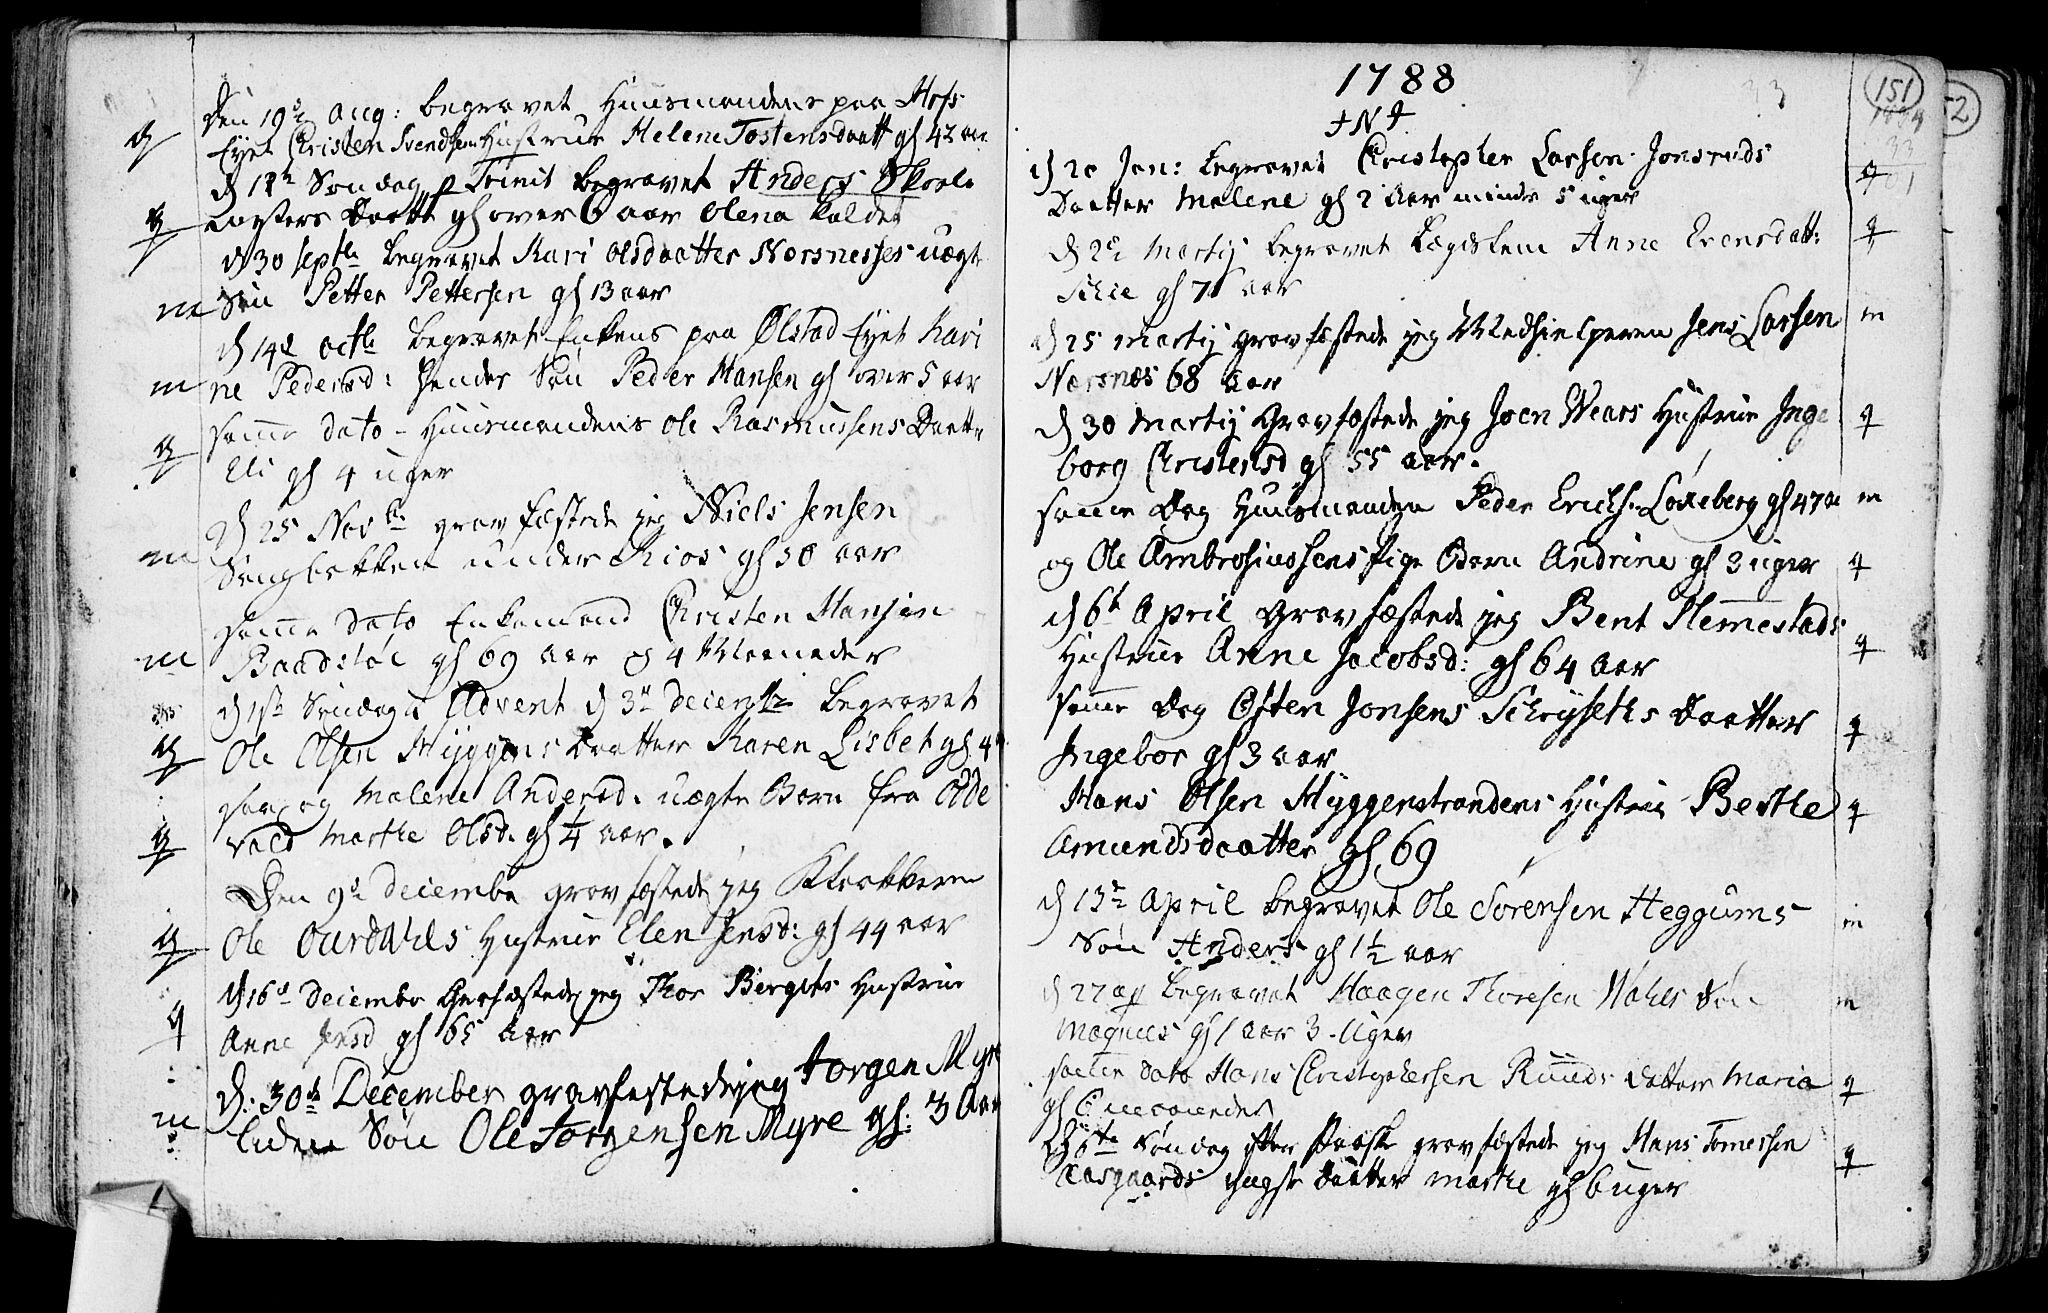 Den 19de Aug: begravet Huusmandens paa Hofs
Eyet Christen Svendsens Hustrue Helene Tostensdaatt gl 42 aar
q
d 12te Søndag p Trinit begravet Anders Skole
q
mesters Daatt gl over 6 aar Olena kaldet
d 30 septbr begravet Kari Olsdaatter Nærsnesses uægte
m
Søn Petter Pettersen gl 13 aar
d 14de octbr begravet Enkens paa Ølstad Eyet Kari
m
ne Pedersd: hendes Søn Peder Hansen gl over 5 aar
samme dato - Huusmandens Ole Rasmussens Daatter
q
Eli gl 4 uger
d 25 Novbr gravfæstede jeg Niels Jensen
m
bakken under Kios gl 50 aar
samme dato Enkemand Christen Hansen
m
Baadstøe gl 69 aar og 4 Maaneder
d 1ste Søndag i Advent d 3de decembr begravet
q
Ole Olsen Myggens Daatter Karen Lisbet gl 4
og Malene Andersd. uægte Barn fra Odde
q
vald Marthe Olsd. gl 1/4 aar.
Den 9de decembr gravfæstede jeg Klokkeren
q
Ole Ourdahls Hustrue Elen Jensd: gl 44 aar
d 16de decembr gravfæstede jeg Thor Bergets Hustrue
q
Anne Jensd gl 65 aar
d: 30te December gravfestede jeg Jorgen Myre
m
Eiden Søn Ole Jorgensen Myre gl: 3 Aar
1788
151
52
33
+ N +
d 20 Jan: begravet Christopher Larsen Jonsruds
q
Daatter Malene gl 2 aar mindre 5 uger
d 2de Martij begravet Lægdslem Anne Evensdatt:
q
gl 70 aar
d 25 Martij gravfæstede jeg Medhielperen Jens Larsen
m
Nærsnæs 68 aar
d 30 Martij Gravfæstede jeg Joen Wears Hustrue Inge
q
borg Christensd gl 55 aar.
samme Dag Huusmanden Peder Erichs. Løkeberg gl 47 a
m
og Ole Ambrosiussens Pige Barn Andrine gl 3 uger
q
d 6te April Gravfæstede jeg Bent Hemmestads
Hustrue Anne Jacobsd: gl 64 aar
q
samme Dag Osten Jonsens Schryseths Daatter
q
Ingebor gl 3 aar
Hans Olsen Myggenstrandens Hustrue Berthe
q
Amundsdaatter gl 69
d 13de April begravet Ole Sørensen Heggums
m
Søn Anders gl 1 1/2 aar
d 27 ap begravet Haagen Thoresen Wahls Søn
m
Magnus gl 1 aar 3 Uger
samme dato Hans Christophersen Ruuds datter Maria
q
gl 6 maaneder
d 5te Søndag efter Paaske gravfæstede jeg Hans Tomessen
q
Aasgaards yngste Daatter Marthe gl 6 uger